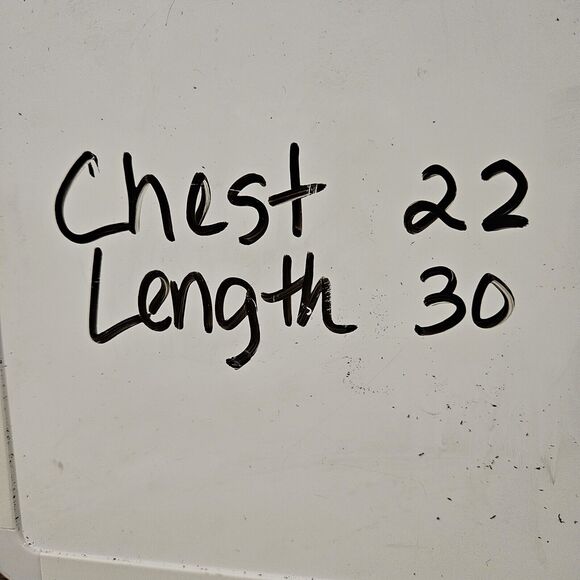 Chest 22
Length 30